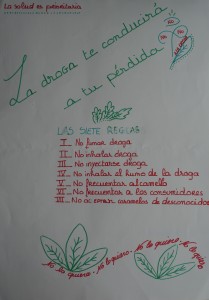 La salud es prioritaria
La droga te conducirá
a tu pérdida
NO
NO
LAS SIETE REGLAS
I_ No fumar droga
II_ No inhalar droga
III_ No inyectarse droga
IV_ No inhalar el humo de la droga
V_ No frecuentar al camello
VI_ No frecuentar a los consumidores
VII_ No aceptar caramelos de desconocidos
No lo quiero_ No lo quiero_ No lo quiero
No lo quiero_ No lo quiero